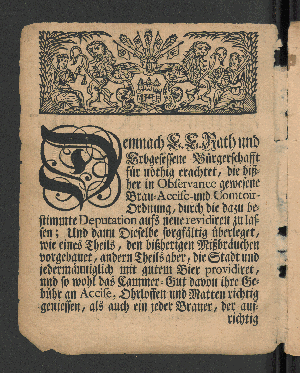 Demnach E. E. Rath und
Erbgesessene Bürgerschafft
für nöthig erachtet, die biß-
her in Observance gewesene
Brau-Accise-und Comtoir-
Ordnung, durch die dazu be-
stimmte Deputation aufs neue revidiren zu las-
sen; Und dann Dieselbe sorgfältig überleget,
wie eines Theils, den bißherigen Mißbräuchen
vorgebauet, andern Theils aber, die Stadt und
jedermänniglich mit gutem Bier providiret,
und so wohl das Cammer-Gut davon ihre Ge-
bühr an Accise, Ohrlossen und Matten richtig
geniessen, als auch ein jeder Brauer, der auf-
richtig